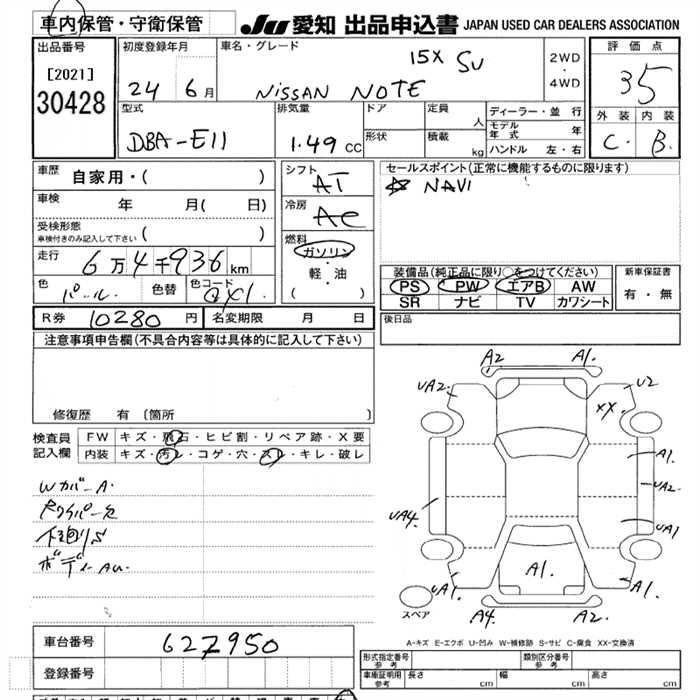 車内保管・守衛保管
JU 愛知 出品申込書 JAPAN USED CAR DEALERS ASSOCIATION
出品番号
[2021]
30428
初度登録年月
24 6月
車名・グレード
15X SV
NISSAN NOTE
2WD
・
4WD
評価点
35
外装 内装
C. B.
型式
DBA-E11
排気量
1.49 CC
ドア
形状
定員
人
積載
kg
ディーラー・並行
モデル年式 年
ハンドル 左・右
車歴
自家用・( )
車検 年 月( 日)
受検形態
車検付きのみ記入して下さい ( )
走行
6万4千936 km
色
パール.
色替
色コード
QX1
シフト
AT
冷房
AC
燃料
ガソリン
・
軽・油
( )
セールスポイント(正常に機能するものに限ります)
☆ NAVI
装備品(純正品に限り○をつけてください)
PS PW エアB AW
SR ナビ TV カワシート
新車保証書
有・無
R券 10280 円 名変期限 月 日
後日品
注意事項申告欄(不具合内容等は具体的に記入して下さい)
修復歴 有 〔箇所 〕
検査員
記入欄
FW キズ・飛石・ヒビ割・リペア跡・X要
内装 キズ・汚レ・コゲ・穴・スレ・キレ・破レ
Wカバー A.
下回りS
ボディー AU.
A2 A1.
UA2. U2
XX.
A1.
UA2.
UA4. UA1
UA1 A1. A1.
スペア
A4. A2.
A-キズ E-エクボ U-凹み W-補修跡 S-サビ C-腐食 XX-交換済
車台番号 627950
登録番号
形式指定番号
参考
類別区分番号
参考
車庫証明用
参考
長さ cm 幅 cm 高さ cm